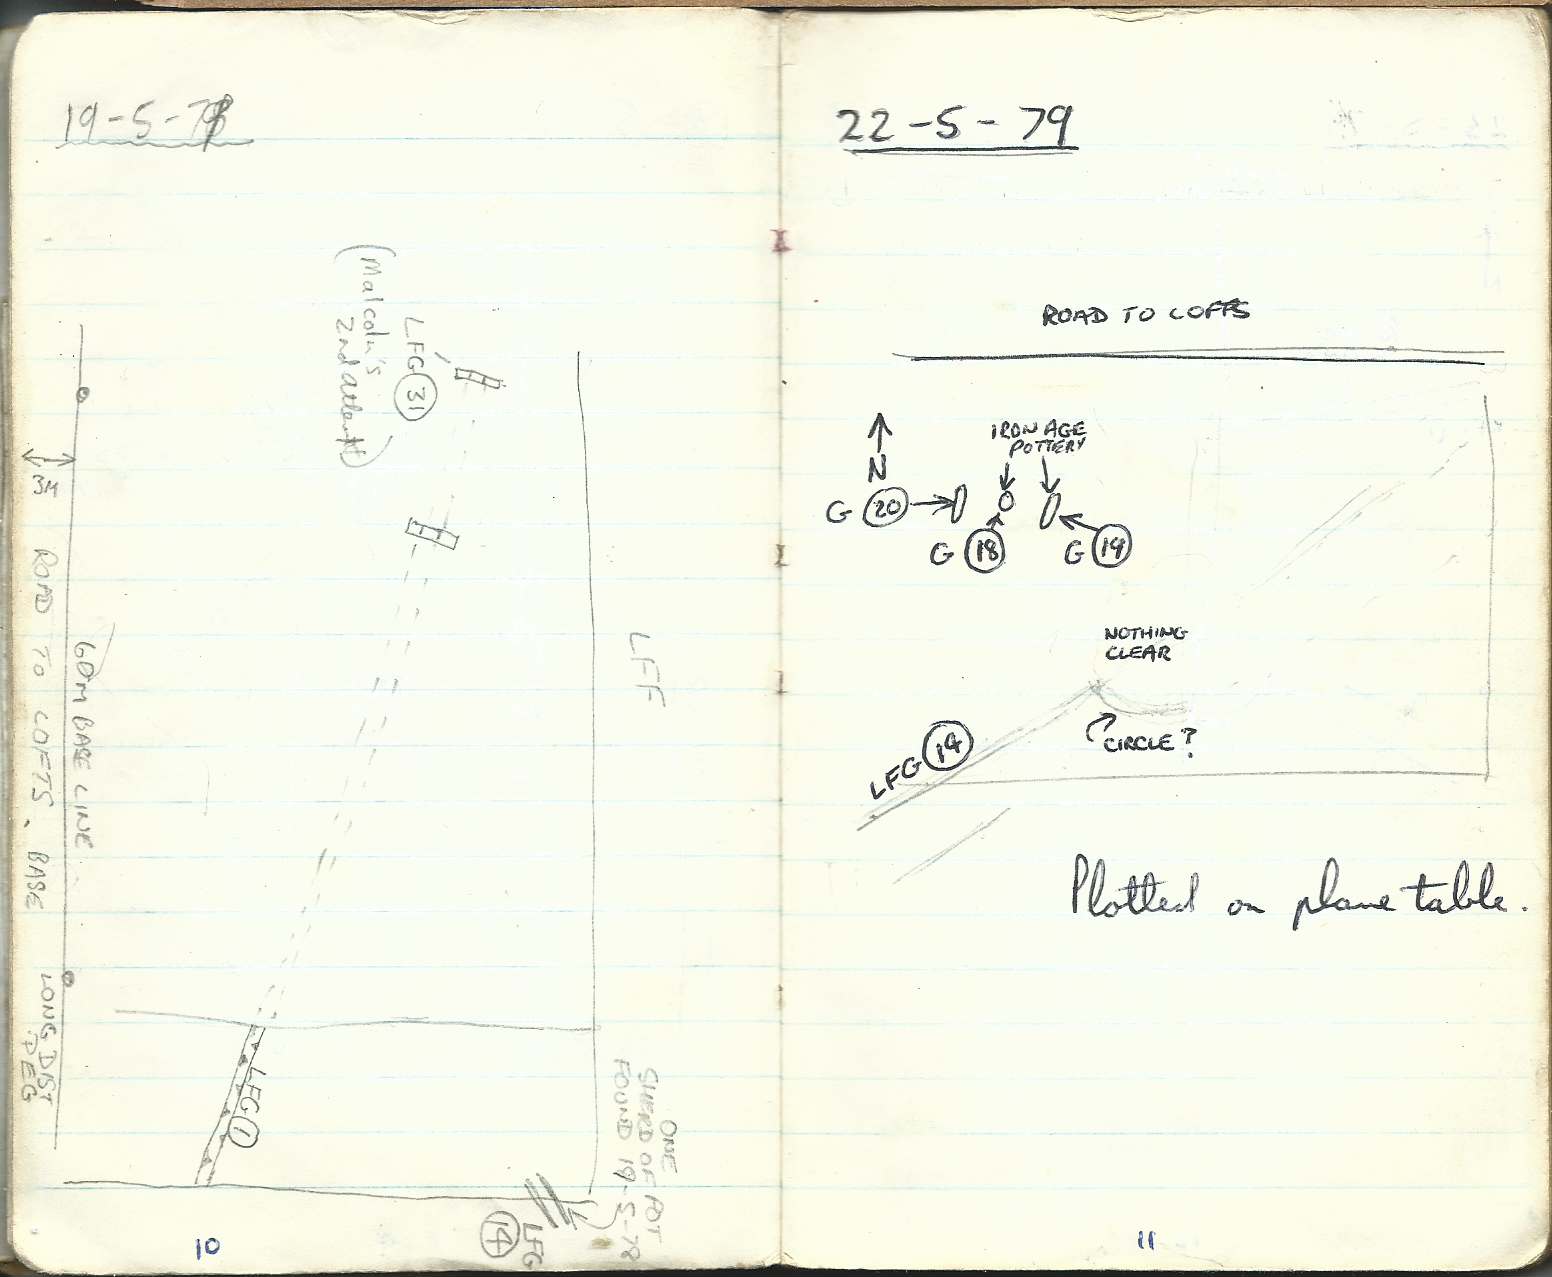 19-5-79
(Malcolm's
2nd attempt)
LFG 31
LFF
3M
ROAD TO LOFTS. BASE
60M BASE LINE
LONG DIST
PEG
LFG 1
ONE
SHERD OF POT
FOUND 19-5-78
LFG
14
10
22-5-79
ROAD TO LOFTS
N
IRON AGE
POTTERY
G 20
G 18
G 19
NOTHING
CLEAR
CIRCLE?
LFG 14
Plotted on plane table.
11